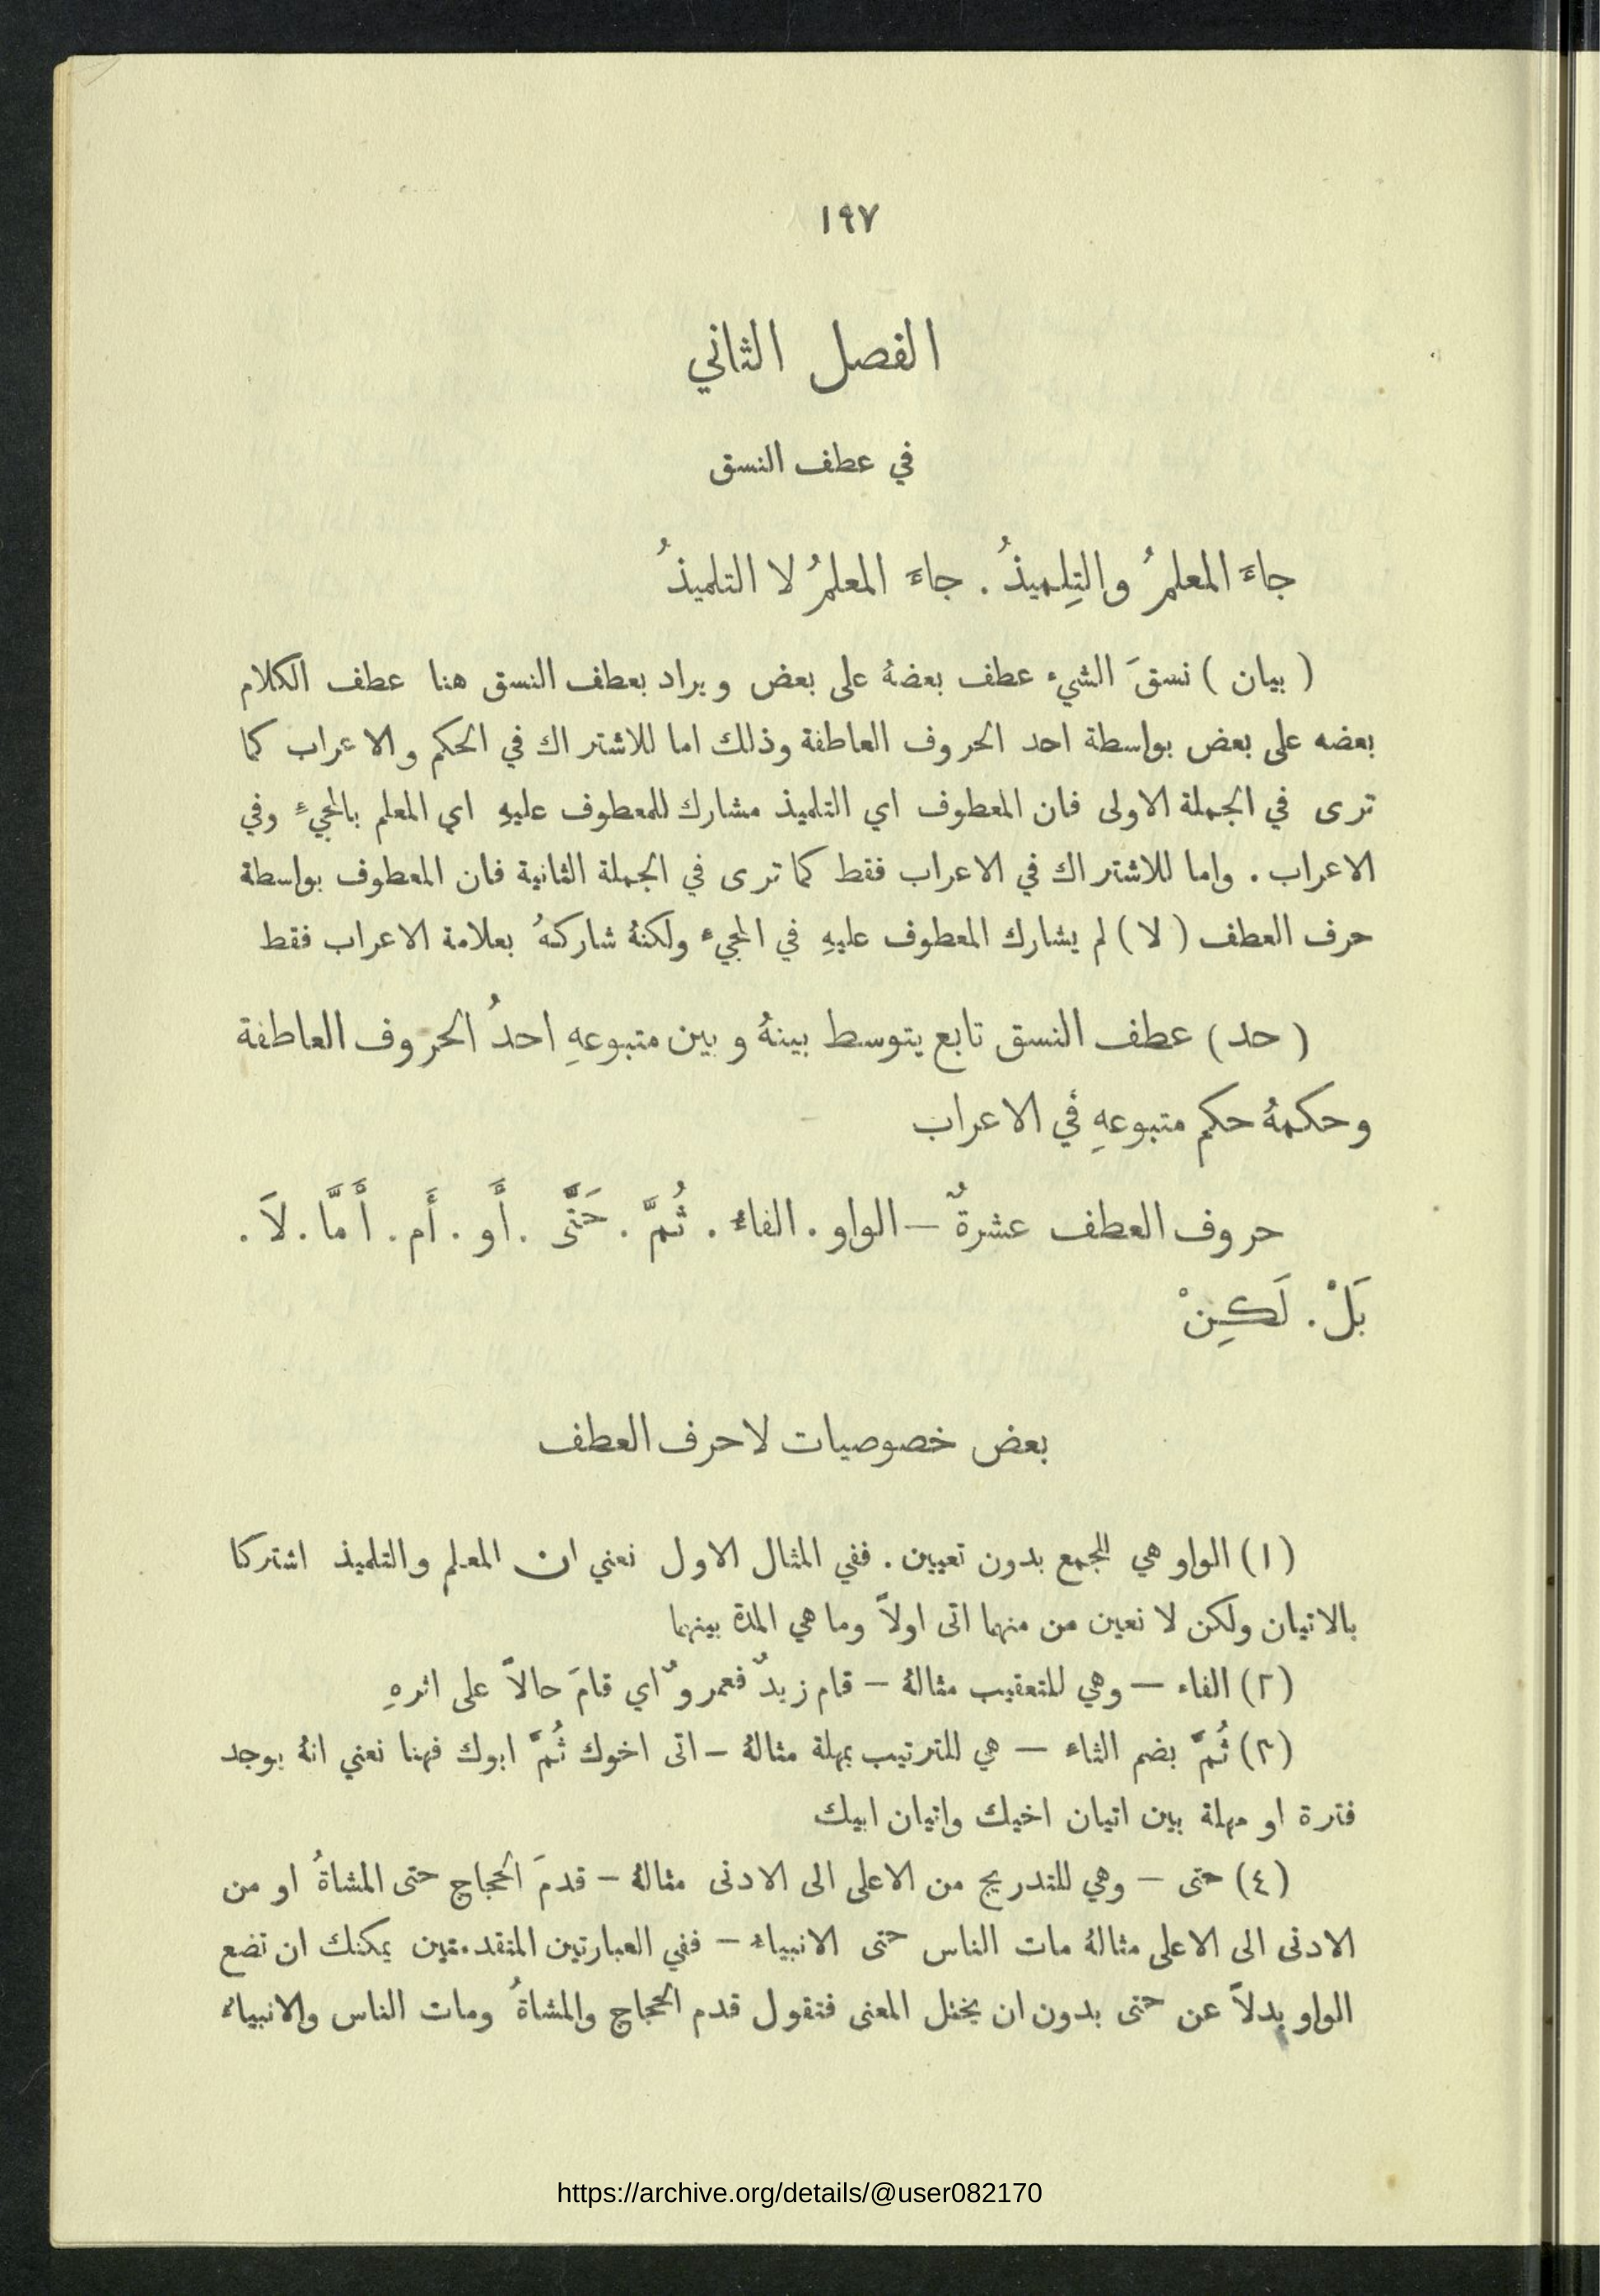 ١٩٧
الفصل الثاني
في عطف النسق
جاءَ المعلمُ والتِلميذُ . جاءَ المعلمُ لا التلميذُ
( بيان ) نسقَ الشيء عطف بعضهُ على بعض ويراد بعطف النسق هنا عطف الكلام
بعضه على بعض بواسطة احد الحروف العاطفة وذلك اما للاشتراك في الحكم والاعراب كما
ترى في الجملة الاولى فان المعطوف اي التلميذ مشارك للمعطوف عليهِ اي المعلم بالمجيءِ وفي
الاعراب . واما للاشتراك في الاعراب فقط كما ترى في الجملة الثانية فان المعطوف بواسطة
حرف العطف ( لا ) لم يشارك المعطوف عليهِ في المجيء ولكنهُ شاركهُ بعلامة الاعراب فقط
( حد ) عطف النسق تابع يتوسط بينهُ وبين متبوعهِ احدُ الحروف العاطفة
وحكمهُ حكم متبوعهِ في الاعراب
حروف العطف عشرةٌ – الواو . الفاء . ثُمَّ . حَتَّى . أَو . أَم . أَمَّا . لاَ .
بَلْ . لَكِنْ
بعض خصوصيات لاحرف العطف
(١) الواو هي للجمع بدون تعيين . ففي المثال الاول نعني ان المعلم والتلميذ اشتركا
بالاتيان ولكن لا نعين من منهما اتى اولاً وما هي المدة بينهما
(٢) الفاء – وهي للتعقيب مثالهُ – قام زيدٌ فعمروٌ اي قامَ حالاً على اثرهِ
(٣) ثُمَّ بضم الثاء – هي للترتيب بمهلة مثالهُ – اتى اخوك ثُمَّ ابوك فهنا نعني انهُ يوجد
فترة او مهلة بين اتيان اخيك واتيان ابيك
(٤) حتى – وهي للتدريج من الاعلى الى الادنى مثالهُ – قدمَ الحجاج حتى المشاةُ او من
الادنى الى الاعلى مثالهُ مات الناس حتى الانبياء – ففي العبارتين المتقدمتين يمكنك ان تضع
الواو بدلاً عن حتى بدون ان يختل المعنى فتقول قدم الحجاج والمشاةُ ومات الناس والانبياء
https://archive.org/details/@user082170